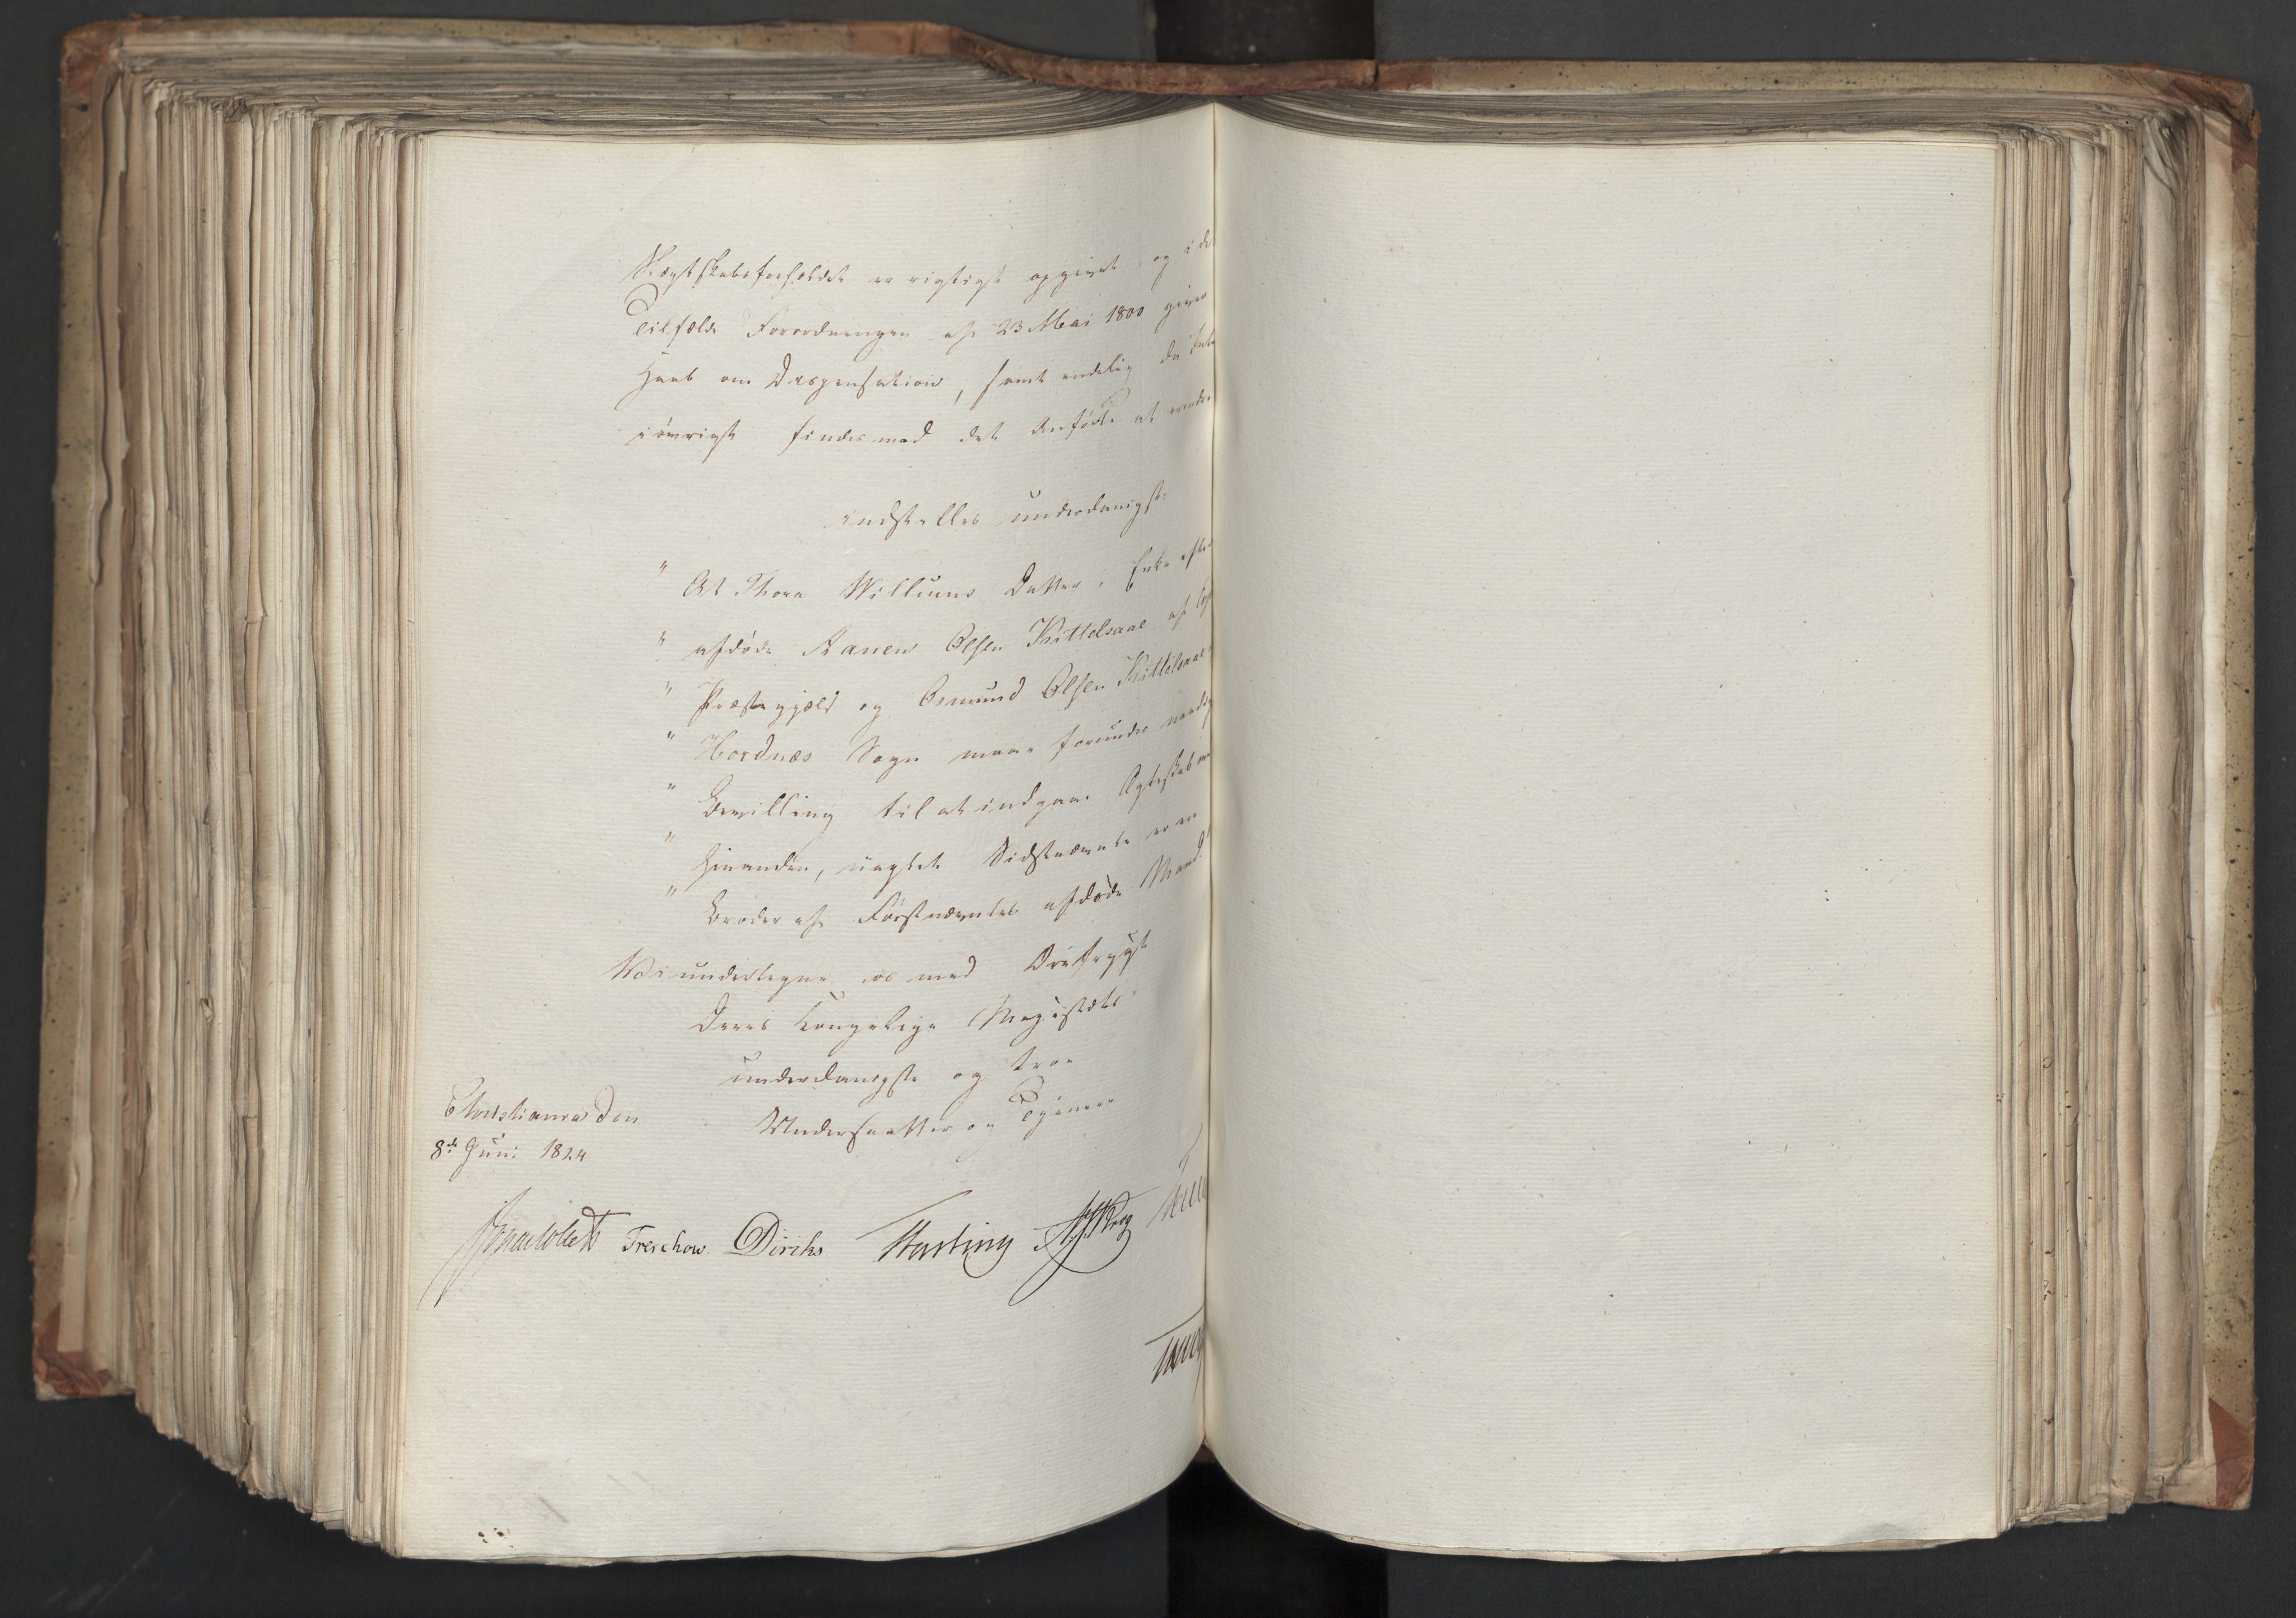 Slægtskabsforholdet er rigtigt opgivet, og i de
Tilfælde Forordningen af 23 Mai 1800 giver
Haab om Dispensation, samt endelig da Intet
iøvrigt findes mod det Anførte at erindre
indstilles underdanigst:
" At Thora Willums Datter, Enke efter
" afdøde Aanen Olsen Kittelsaae af
" Præstegjæld og Osmund Olsen Kittelsaae
" Hordnæs Sogn maae forundes naadigst
" Bevilling til at indgaae Ægteskab med
" hinanden, uagtet Sidstnævnte er en
" Broder af Førstnævntes afdøde Mand.
Vi undertegne os med Ærefrygt
Deres Kongelige Majestæts
underdanigste og troe
Undersaatter og Tjenere
Christiania den
8de Juni 1824
Jonas Collett Treschow Diriks Hasting Krog